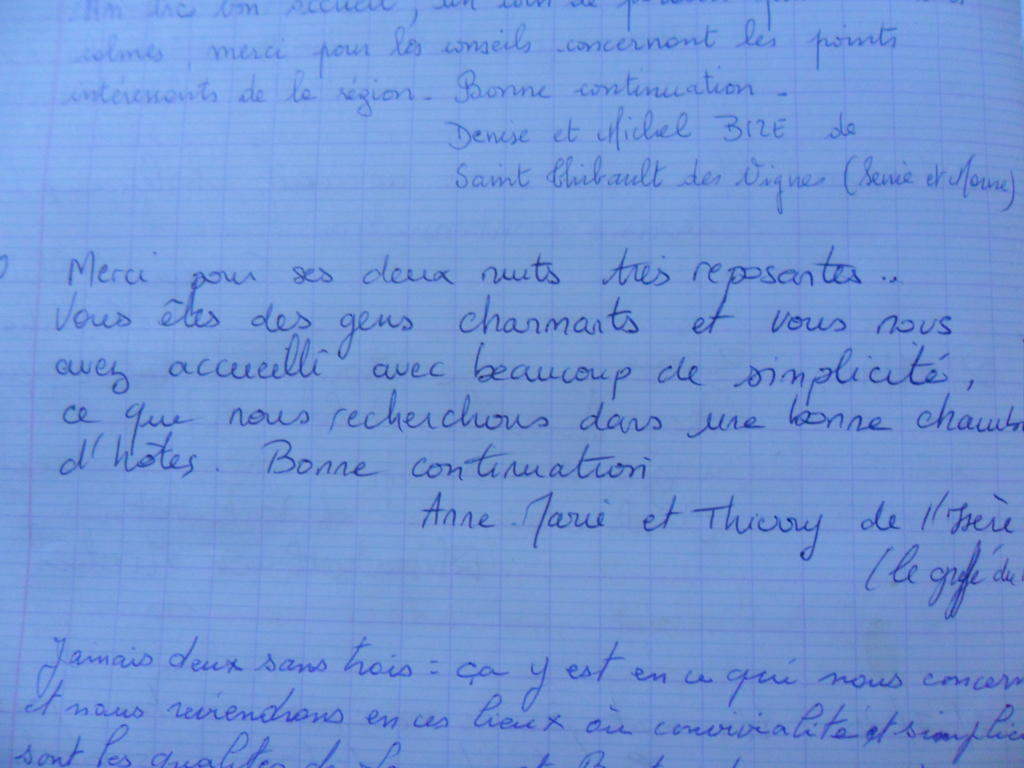 un très bon accueil, un coin de
calmes, merci pour les conseils concernant les points
intéressants de la région. Bonne continuation.
Denise et Michel BIZE de
Saint Thibault des Vignes (Seine et Marne)
Merci pour ses deux nuits très reposantes..
Vous êtes des gens charmants et vous nous
avez accueilli avec beaucoup de simplicité,
ce que nous recherchons dans une bonne chamb
d'hôtes. Bonne continuation
Anne-Marie et Thierry de l'Isère
(le du
Jamais deux sans trois : ça y est en ce qui nous concern
et nous reviendrons en ces lieux où convivialité et simplici
sont les qualités de